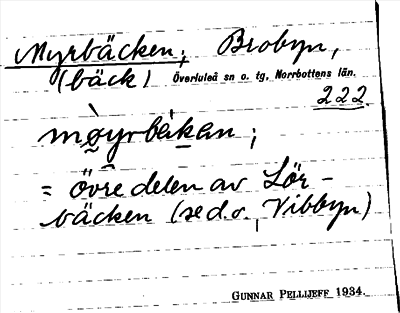 Myrbäcken; Brobyn,
(bäck) Överluleå sn o. tg, Norrbottens län.
222.
möyrbäkən;
= övre delen av Lör-
bäcken (se d. o., Vibbyn)
GUNNAR PELLIJEFF 1934.